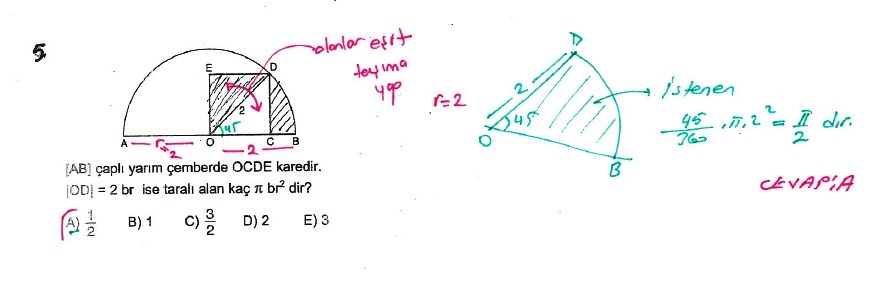 5.
alanlar eşit
taşıma
yap
E
D
2
45
A
r=2
O
2
C
B
[AB] çaplı yarım çemberde OCDE karedir.
|OD| = 2 br ise taralı alan kaç π br² dir?
A) 1/2 B) 1 C) 3/2 D) 2 E) 3
r=2
D
2
45
O
B
istenen
45/360 .π.2² = π/2 dir.
CEVAP:A